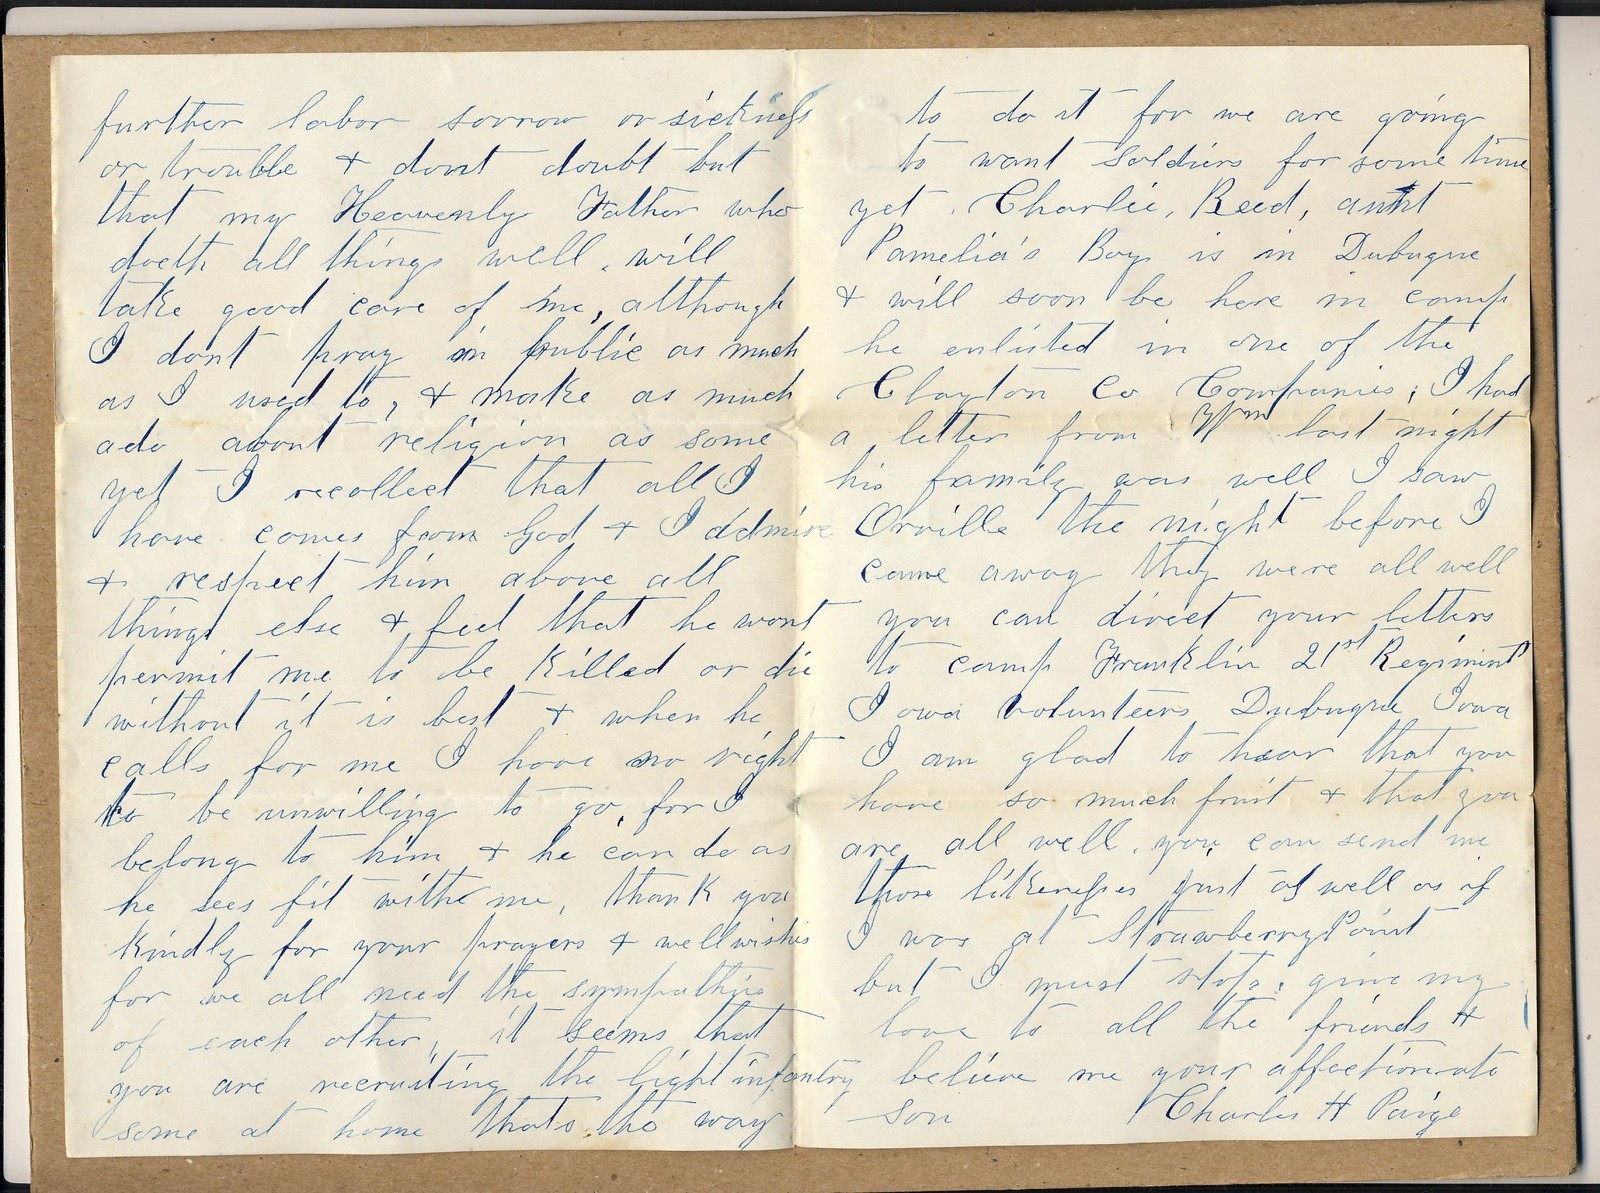 further labor sorrow or sickness
or trouble & dont doubt but
that my Heavenly Father who
doeth all things well, will
take good care of me, although
I dont pray in public as much
as I used to, & make as much
ado about religion as some
yet I recollect that all I
have comes from God & I admire
& respect him above all
things else & feel that he wont
permit me to be killed or die
without it is best & when he
calls for me I have no right
to be unwilling to go, for I
belong to him & he can do as
he sees fit with me, thank you
kindly for your prayers & wellwishes
for we all need the sympathies
of each other, it seems that
you are recruiting the light infantry
some at home thats the way
to do it for we are going
to want soldiers for some time
yet. Charlie, Reed, aunt
Pamelia's Boy is in Dubuque
& will soon be here in camp
he enlisted in one of the
Clayton Co Companies; I had
a letter from Wm last night
his family was well I saw
Orville the night before I
came away they were all well
you can direct your letters
to camp Franklin 21st Regiment
Iowa volunteers Dubuque Iowa
I am glad to hear that you
have so much fruit & that you
are all well, you can send me
those likenesses just as well as if
I was at Strawberry Point
but I must stop, give my
love to all the friends &
believe me your affectionate
son Charles H Paige